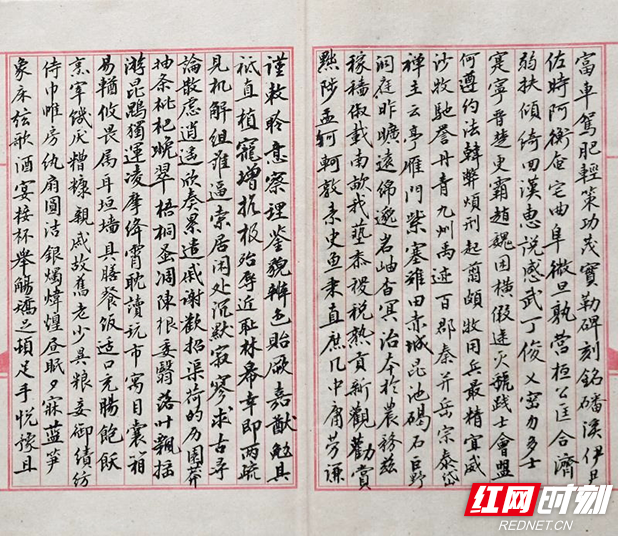 富車駕肥輕策功茂實勒碑刻銘磻溪伊尹
佐時阿衡奄宅曲阜微旦孰營桓公匡合濟
弱扶傾綺回漢惠說感武丁俊乂密勿多士
寔寧晉楚更霸趙魏困橫假途滅虢踐土會盟
何遵約法韓弊煩刑起翦頗牧用兵最精宣威
沙馳譽丹青九州禹迹百郡秦并岳宗泰岱
禪主云亭雁門紫塞雞田赤城昆池碣石巨野
洞庭曠遠綿邈岩岫杳冥治本於農務茲
稼穡俶載南畝我藝黍稷稅熟貢新勸賞
黜陟孟軻敦素史魚秉直庶几中庸勞謙
謹敕聆音察理鑒貌辨色貽厥嘉猷勉其
祗直植寵增抗極殆辱近恥林皋幸即兩疏
見机解組誰逼索居闲处沉默寂寥求古尋
論散慮逍遙欣奏累遣慼謝歡招渠荷的历園莽
抽条枇杷晚翠梧桐蚤凋陳根委翳落葉飄搖
游昆鵾獨運凌摩絳霄耽讀玩市寓目囊箱
易輶攸畏屬耳垣墻具膳餐飯适口充腸飽飫
烹宰饑厌糟糠親戚故舊老少異粮妾御績紡
侍巾帷房紈扇圓洁銀燭煒煌晝眠夕寐藍筍
象床弦歌酒宴接杯舉觴矯頓足手悅豫且
红网时刻
REDNET.CN